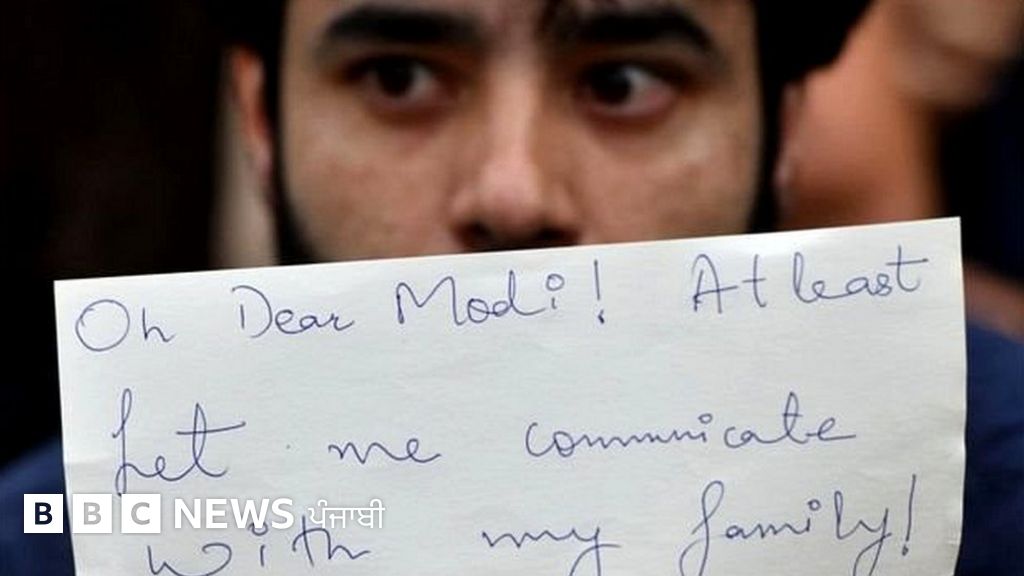 Oh Dear Modi! At least
Let me communicate
with my family!
BBC NEWS ਪੰਜਾਬੀ